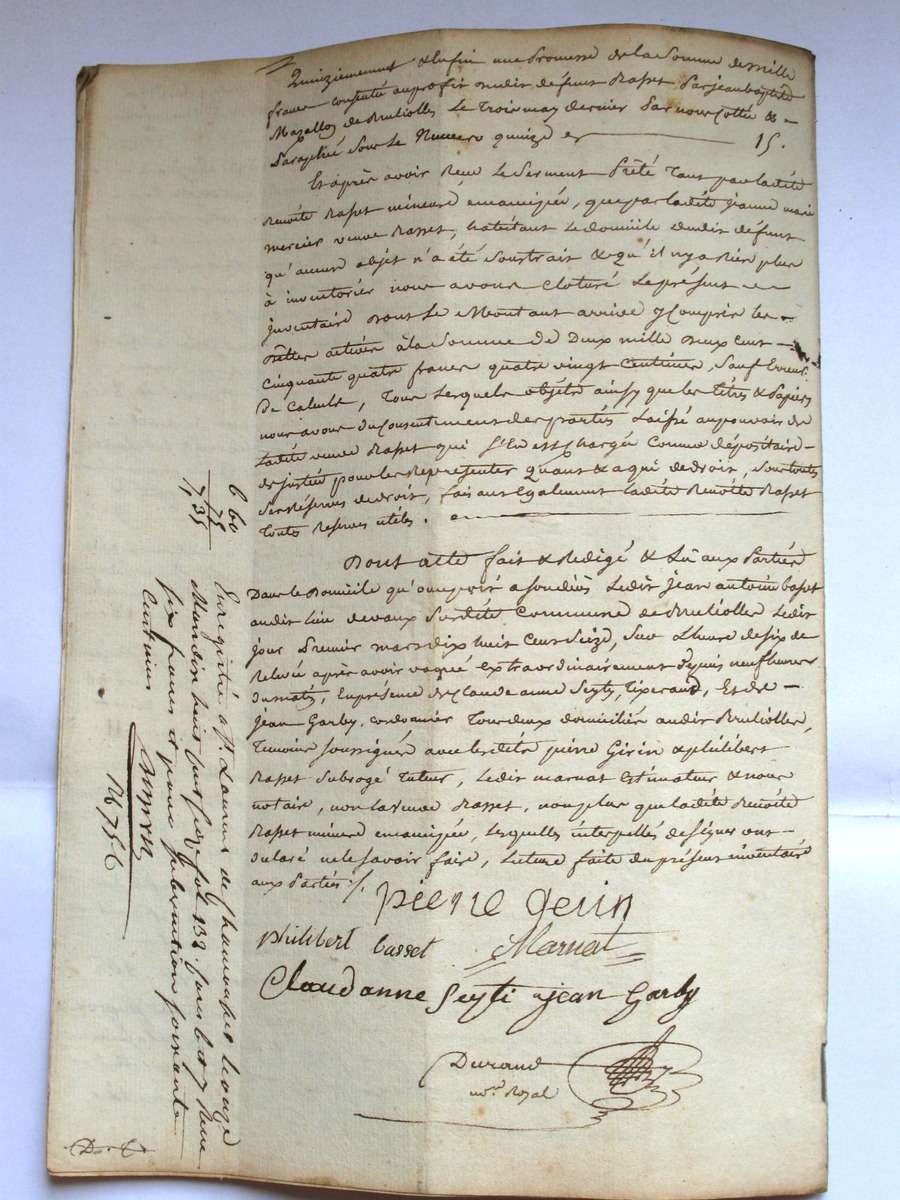 Quinziemement & Enfin une Promesse de la Somme de mille
francs consentie au profit dudit défunt Basset Par jean baptiste
Mazallon de Brulioles Le Trois may dernier Par nous Cottée & -
Paraphée Sous Le Numero quinze cy 15.
Et après avoir Reçu Le Serment Prêté Tant par ladite
Benoîte Basset mineure émancipée, que par ladite jeanne marie
mercier veuve Basset, habitant Le domicile dudit défunt
qu'aucun objet n'a été Soustrait & qu'il n'y a Rien plus
à inventorier nous avons Cloturé Le présent
jnventaire Dont Le Montant arrive y Compris les -
Dettes actives à la Somme de Deux mille deux cent -
Cinquante quatre francs quatre vingt Centimes, Sauf Erreur
De Calculs, Tous Lesquels objets ainsy que les titres & Papiers
nous avons du Consentement des parties Laissé au pouvoir de
Ladite veuve Basset qui S'En est Chargée Comme dépositaire -
de justice pour les Representer Quant & a qui de droit, Sous toutes
Ses Réserves de droit, faisant Egalement Ladite Benoîte Basset
Toutes Reserves utiles.
Dont acte fait & Redigé & Lû aux Parties
Dans Le Domicile qu'occupoit a Son décès Ledit jean antoine basset
audit Lieu de vaux Susdite Commune de Brulioller Ledit
jour Premier mars dix huit Cent Seize, Sur L'heure de six de
Relevée après avoir vaqué Extraordinairement depuis neuf heures
du matin, En présence de Claude anne Seyty, Tixerand, Et de -
jean Garby, cordonnier Tous deux domiciliés audit Brulioller,
Temoins Soussignés avec lesdits pierre Girin & philibert
Basset Subrogé Tuteur, Ledit marnat Estimateur & nous
notaire, non La veuve Basset, non plus que ladite Benoîte
Basset mineure émancipée, Lesquelles interpellés de Signer ont -
declaré ne le Savoir faire, Lecture faite du présent inventaire
aux Parties ./.
pierre gerin
philibert basset Marnat
Claudanne Seyti jean Garby
Durand
no.re Royal
6 60
75
7, 35
Enregistré a St Laurent de Chamousset le onze
Mars dix huit cent seize fol. 138
six francs et pour subvention soixante
Centimes